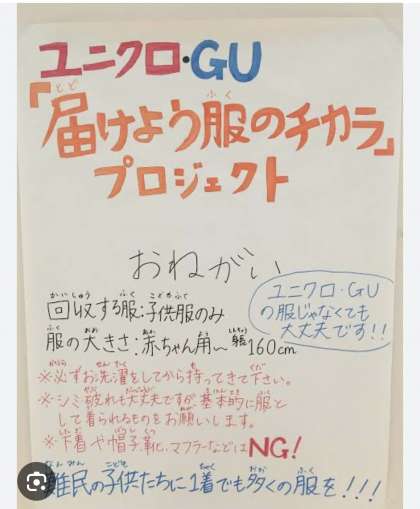 ユニクロ・GU
「届けよう服のチカラ」
プロジェクト
おねがい
回収する服:子供服のみ
ユニクロ・GU
の服じゃなくても
大丈夫です!!
服の大きさ:赤ちゃん用〜身長160cm
※必ずお洗濯をしてから持ってきて下さい。
※シミ破れも大丈夫ですが、基本的に服と
して着られるものをお願いします。
※下着や帽子、靴、マフラーなどはNG!
難民の子供たちに1着でも多くの服を!!!